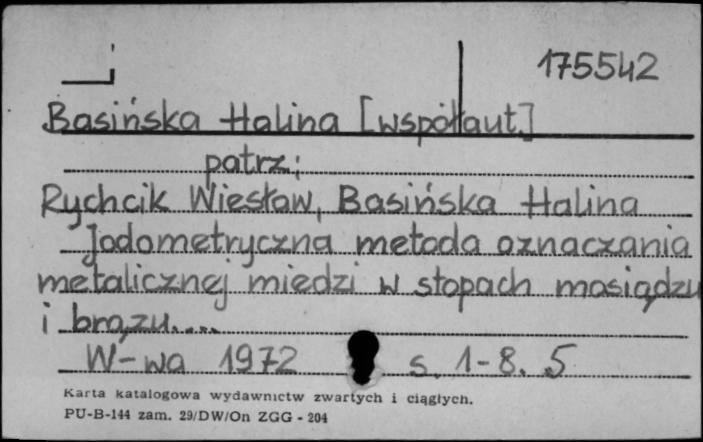 175542
Basińska Halina [współaut.]
patrz:
Rychcik Wiesław, Basińska Halina
Jodometryczna metoda oznaczania
metalicznej miedzi w stopach mosiądzu
i brązu....
W-wa 1972 s. 1-8. 5
Karta katalogowa wydawnictw zwartych i ciągłych.
PU-B-144 zam. 29/DW/On ZGG - 204